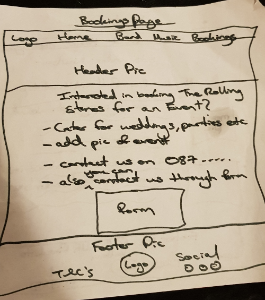 Bookings Page
Logo Home Band Music Bookings
Header Pic
Interested in booking The Rolling
Stones for an Event?
- Cater for weddings, parties etc
- add pic of event
- contact us on 087.....
- also you can contact us through form
Form
Footer Pic
T&C's Logo Social